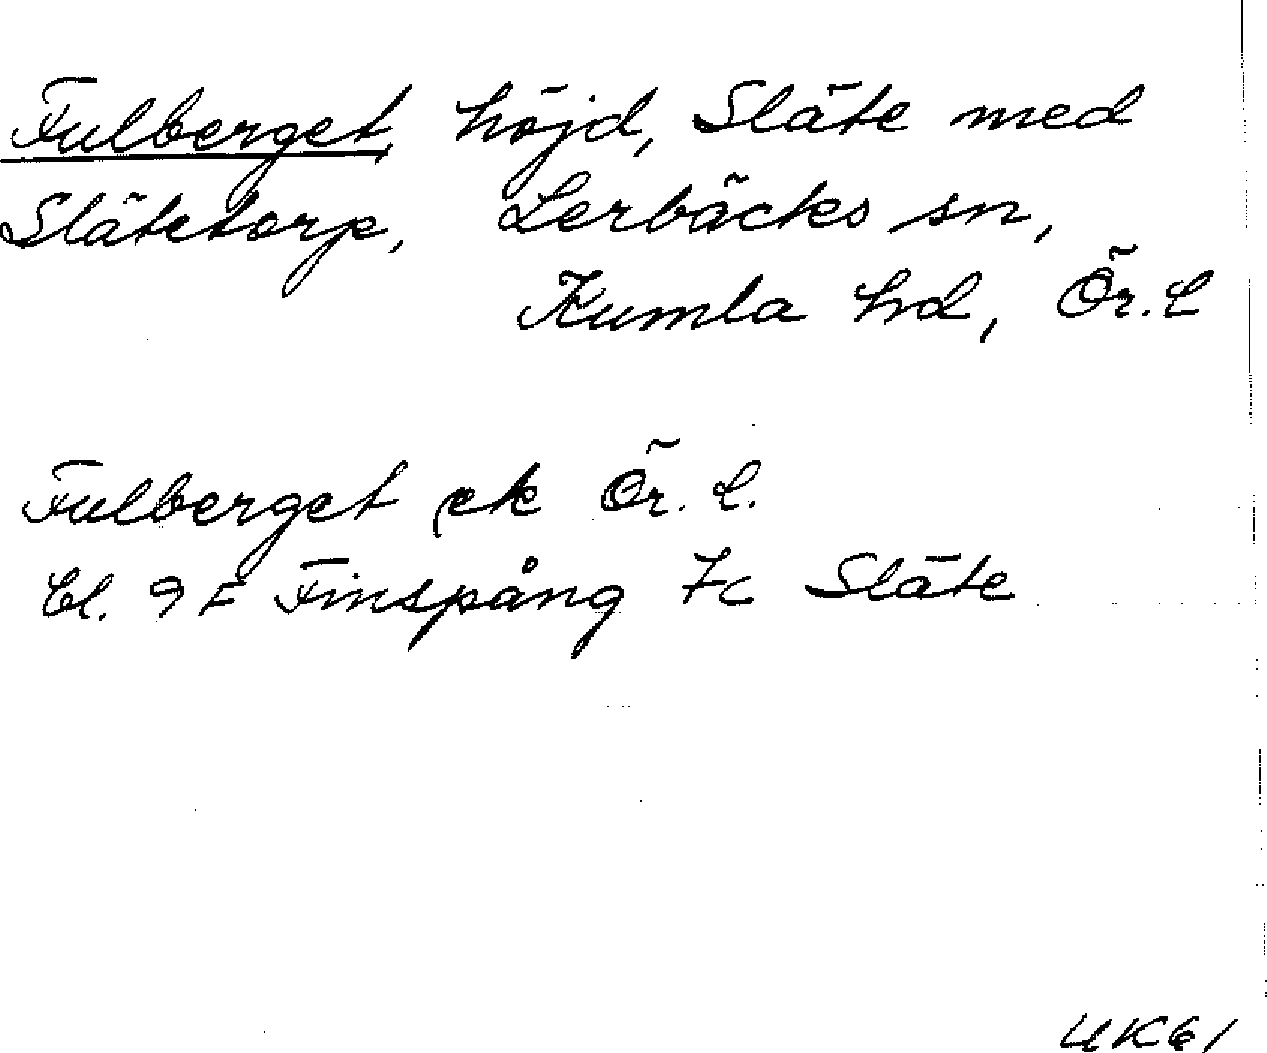 Fulberget, höjd, Släte med
Slätetorp, Lerbäcks sn,
Kumla hd, Ör. L
Fulberget ek Ör. L.
bl. 9 F Finspång 7c Släte
UK61